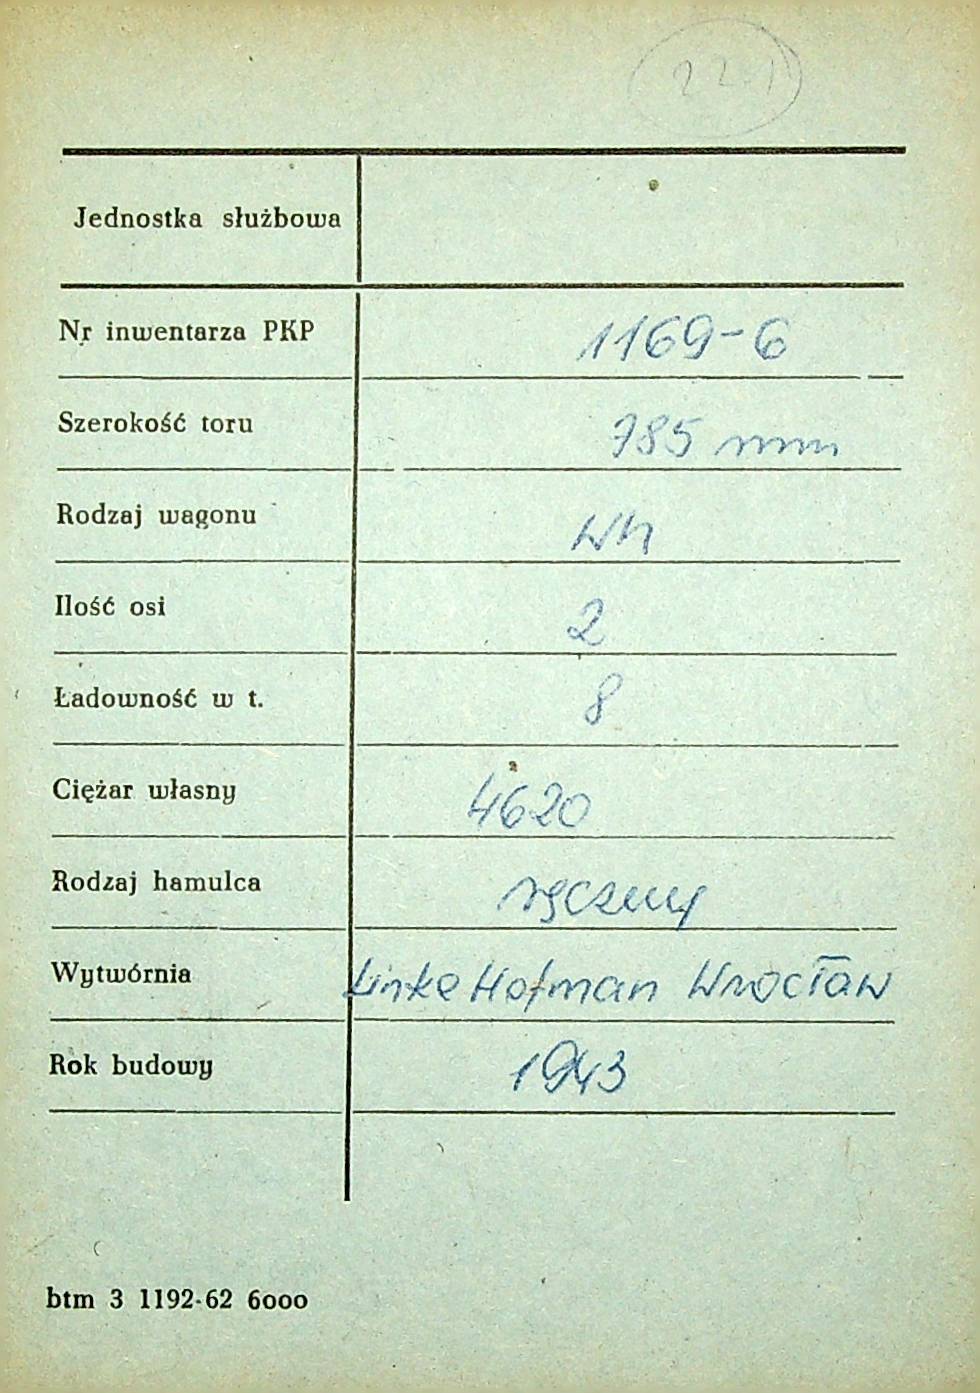 221
Jednostka służbowa
Nr inwentarza PKP 1169-6
Szerokość toru 785 mm
Rodzaj wagonu Wh
Ilość osi 2
Ładowność w t. 8
Ciężar własny 4620
Rodzaj hamulca ręczny
Wytwórnia Linke Hofman Wrocław
Rok budowy 1943
btm 3 1192-62 6000